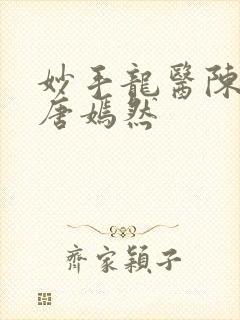 妙手龍醫陳
唐嫣然
齊家穎子